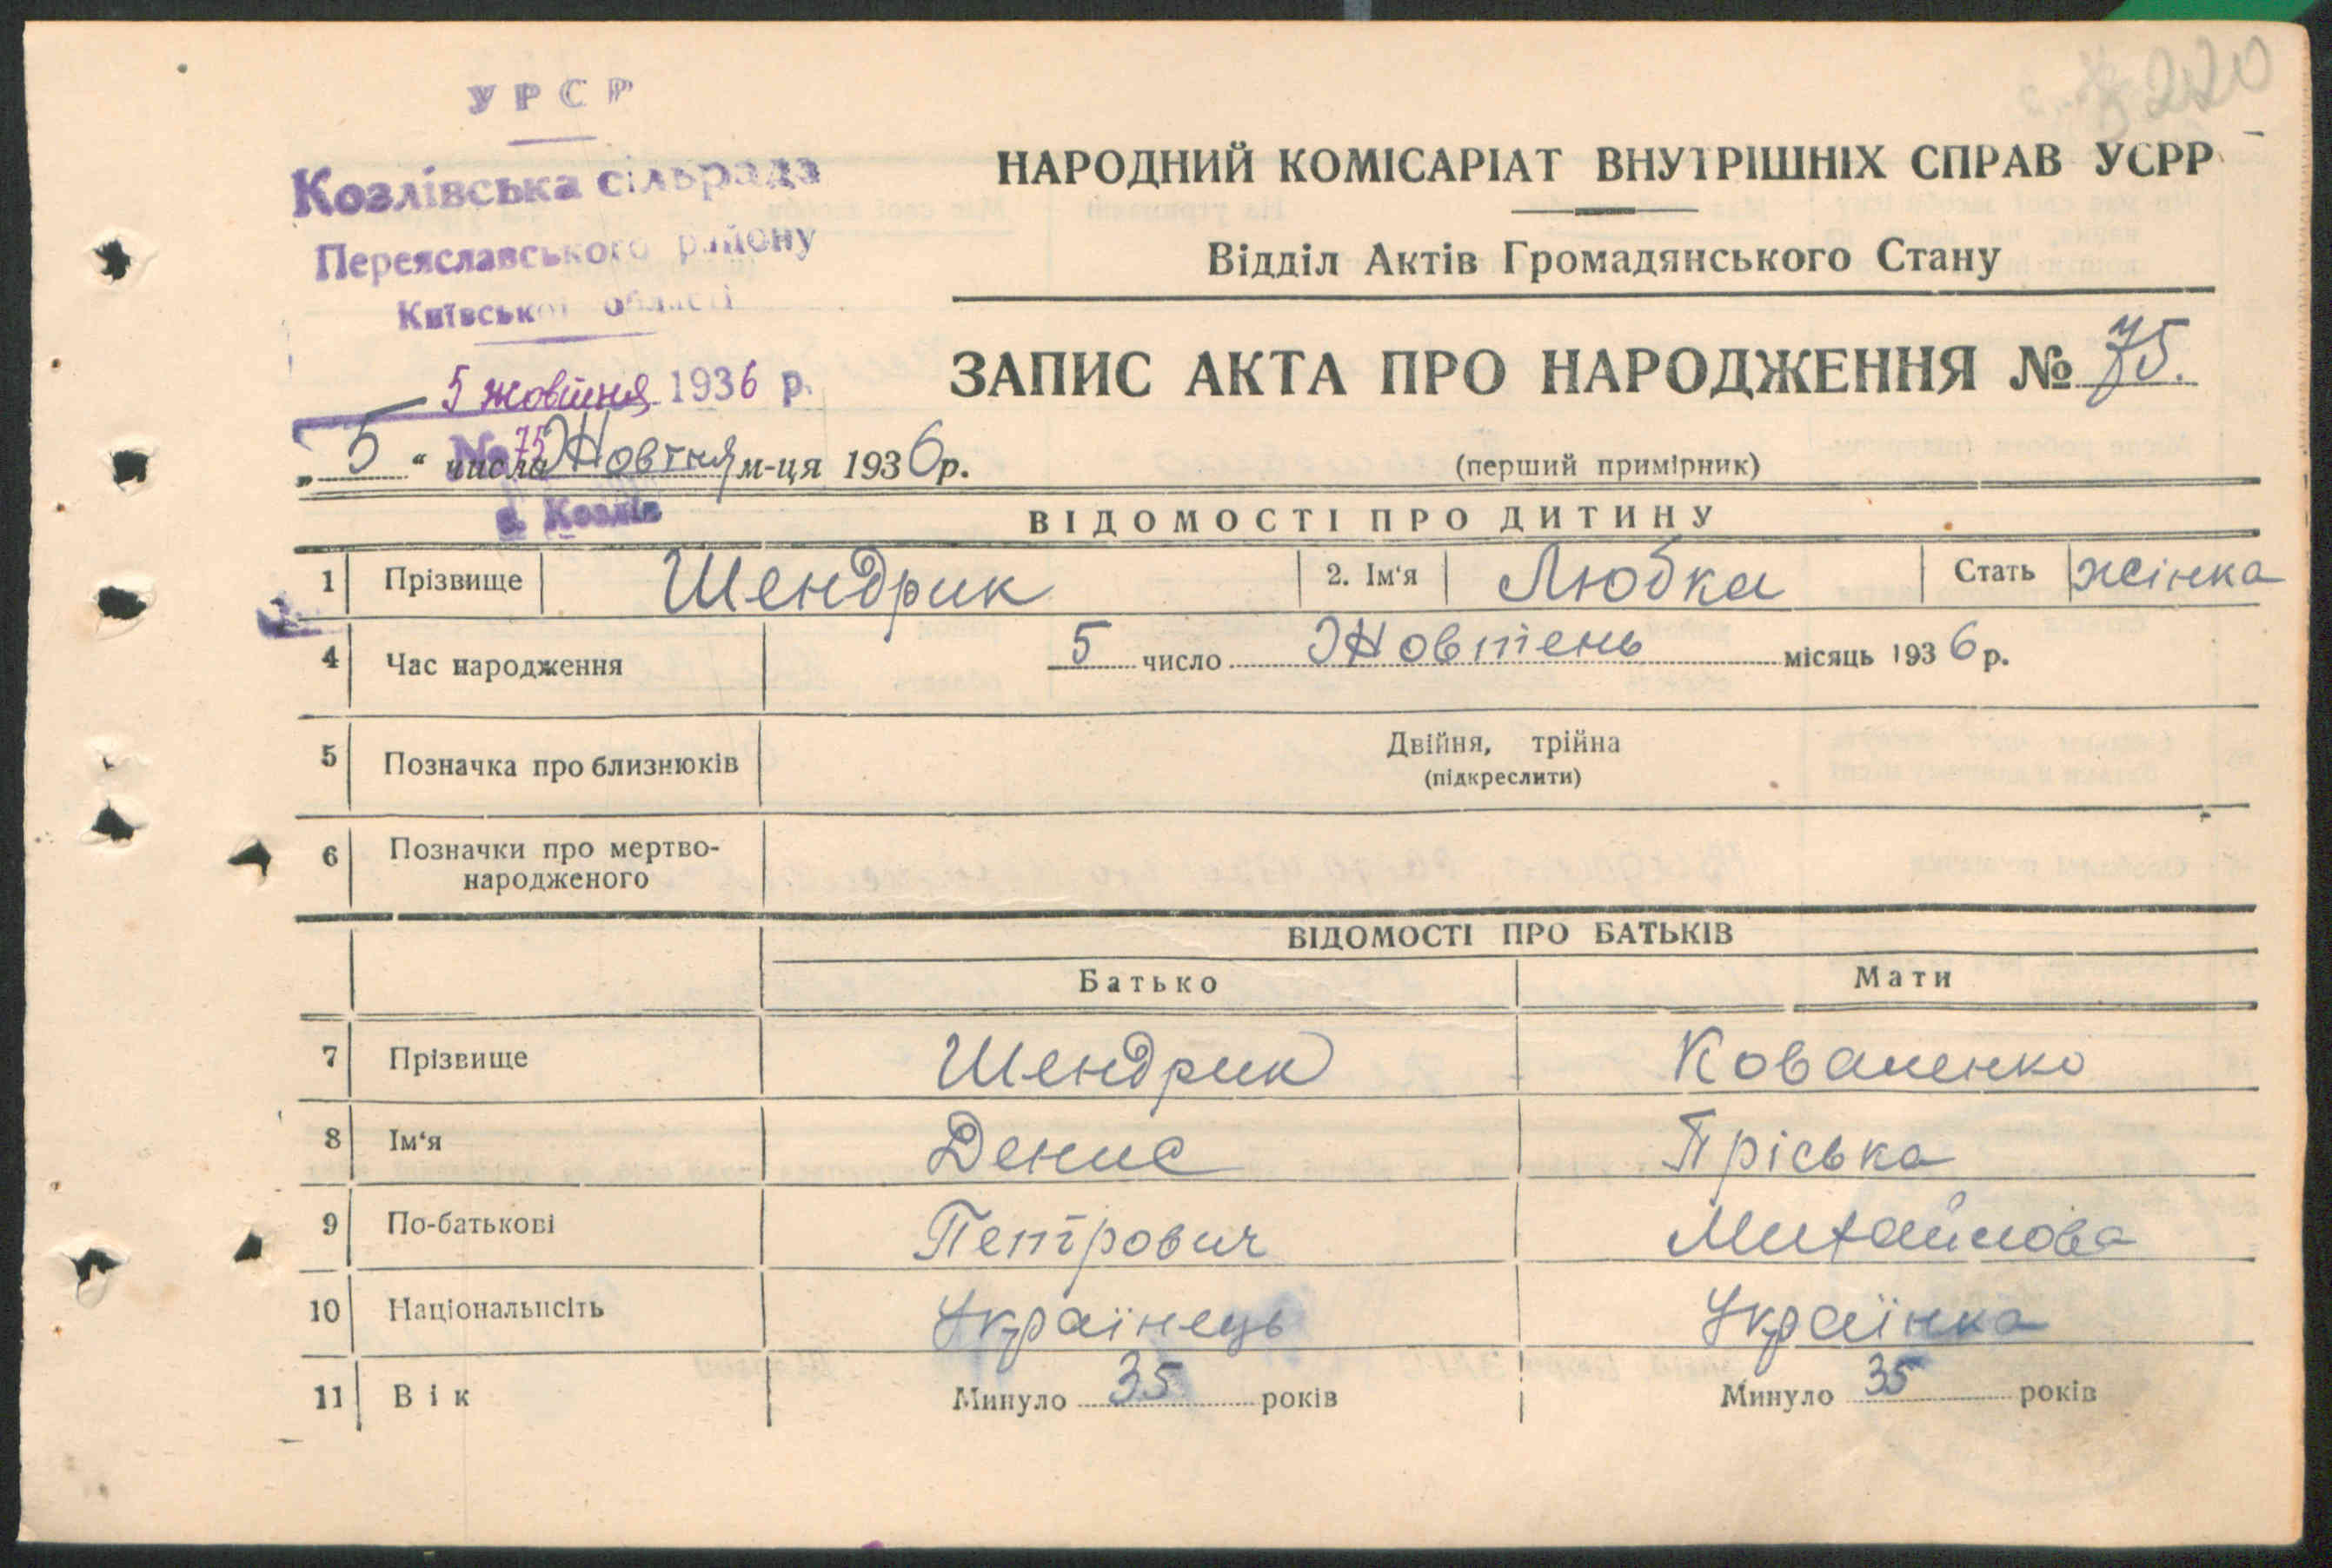 220
УРСР
Козлівська сільрада
Переяславського району
Київської області
5 жовтня 1936 р.
№ 75
с. Козлів
НАРОДНИЙ КОМІСАРІАТ ВНУТРІШНІХ СПРАВ УСРР
Відділ Актів Громадянського Стану
ЗАПИС АКТА ПРО НАРОДЖЕННЯ № 75.
„ 5 “ числа Жовтня м-ця 1936 р.
(перший примірник)
ВІДОМОСТІ ПРО ДИТИНУ
1 Прізвище Шендрик 2. Ім‘я Любка Стать жінка
4 Час народження 5 число Жовтень місяць 1936 р.
5 Позначка про близнюків Двійня, трійна
(підкреслити)
6 Позначки про мертво-
народженого
ВІДОМОСТІ ПРО БАТЬКІВ
Батько Мати
7 Прізвище Шендрик Коваленко
8 Ім‘я Денис Пріська
9 По-батькові Петрович Михайлова
10 Національнсіть Українець Українка
11 Вік Минуло 35 років Минуло 35 років